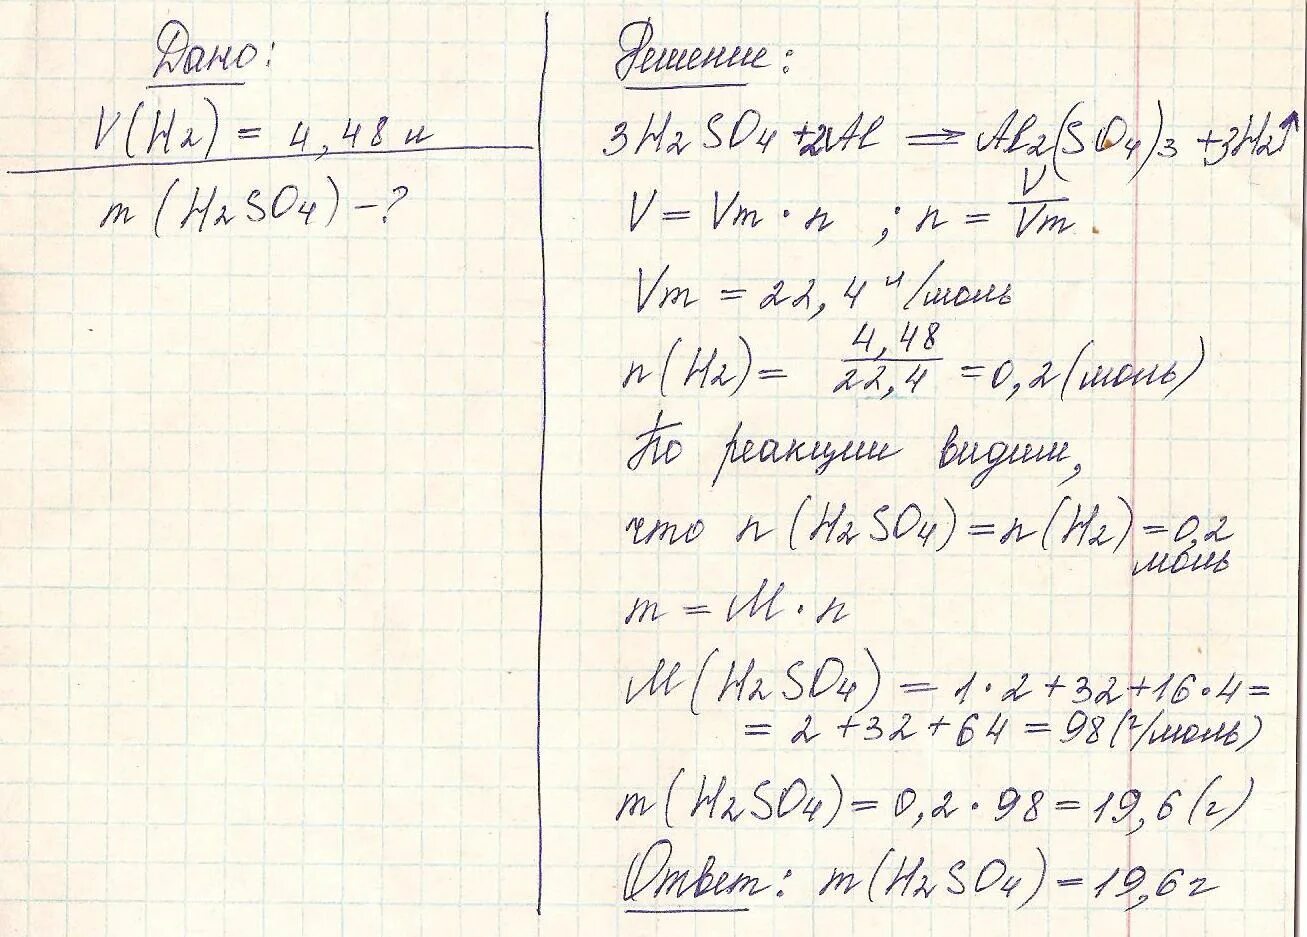 Дано:
V(H2) = 4,48 л
m (H2SO4) – ?
Решение:
3H2SO4 + 2Al ⇒ Al2(SO4)3 + 3H2↑
V = Vm · n ; n = V/Vm
Vm = 22,4 л/моль
n(H2) = 4,48/22,4 = 0,2 (моль)
По реакции видим,
что n (H2SO4) = n(H2) = 0,2
моль
m = M · n
M(H2SO4) = 1·2+32+16·4=
= 2+32+64=98(г/моль)
m(H2SO4) = 0,2 · 98 = 19,6 (г)
Ответ: m(H2SO4) = 19,6 г